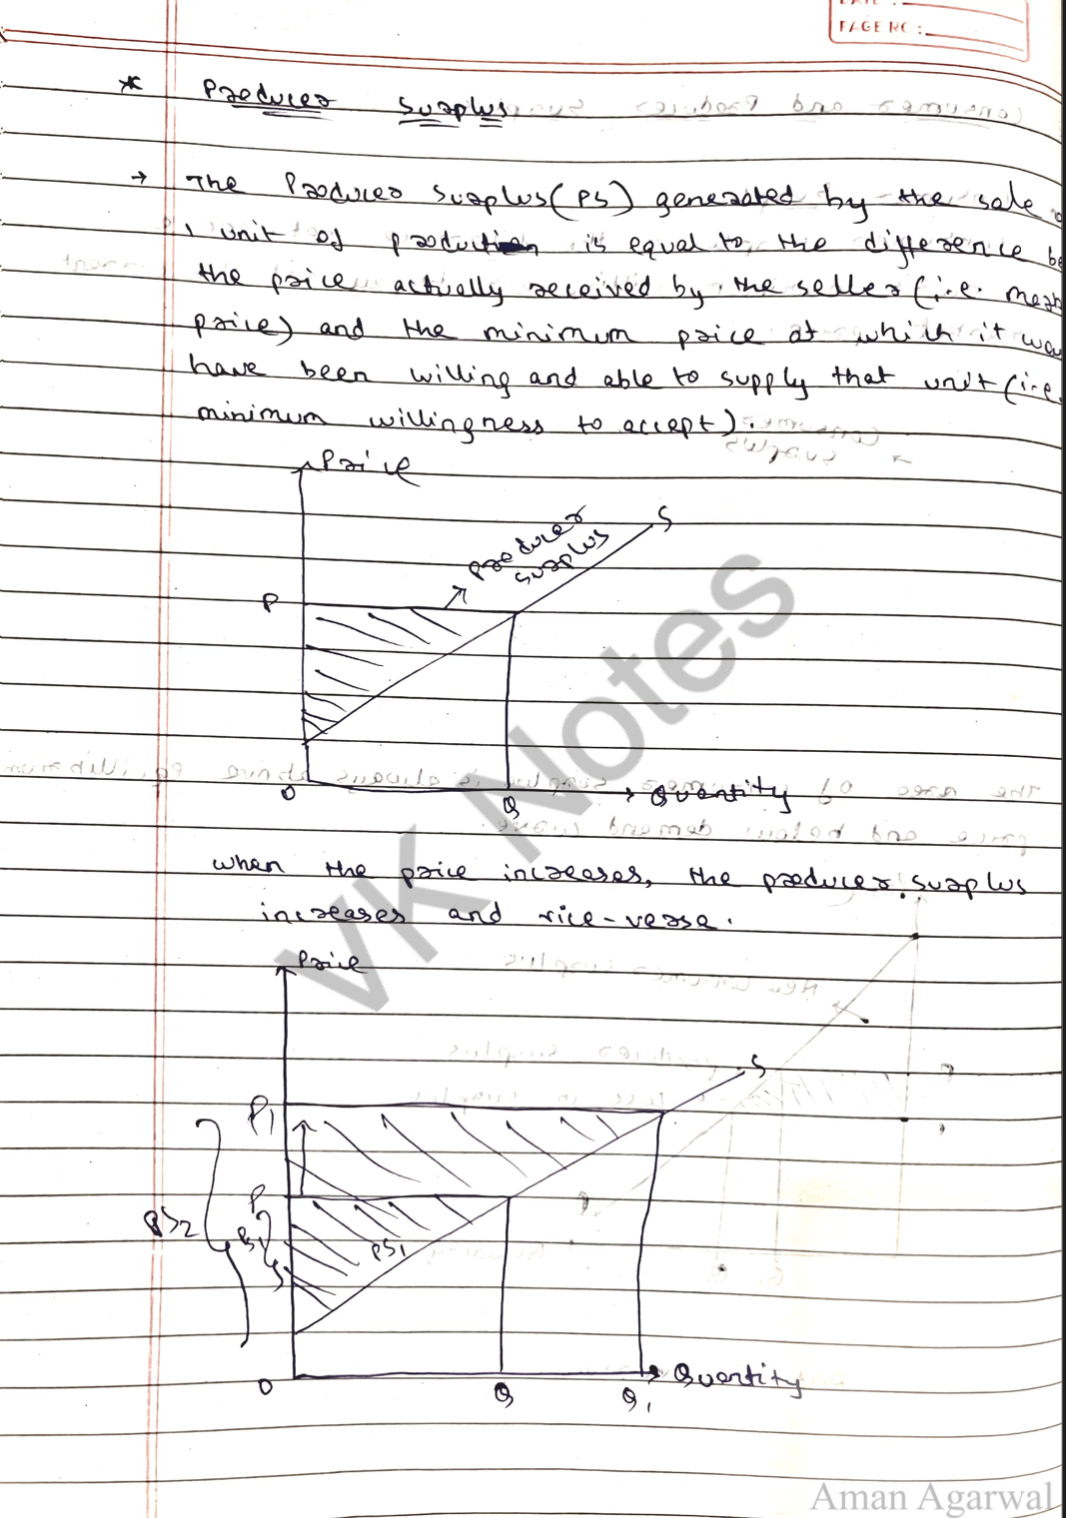 PAGE NO :
* Producer Surplus
→ The Producer Surplus (PS) generated by the sale
1 unit of production is equal to the difference be
the price actually received by the seller (i.e. mar
price) and the minimum price at which it wou
have been willing and able to supply that unit (i.e.
minimum willingness to accept).
Price
S
Producer
Surplus
P
O
Q
→ Quantity
when the price increases, the producer surplus
increases and vice-versa.
Price
S
P1
P
PS2
PS1
O
Q
Q1
Quantity
VK Notes
Aman Agarwal